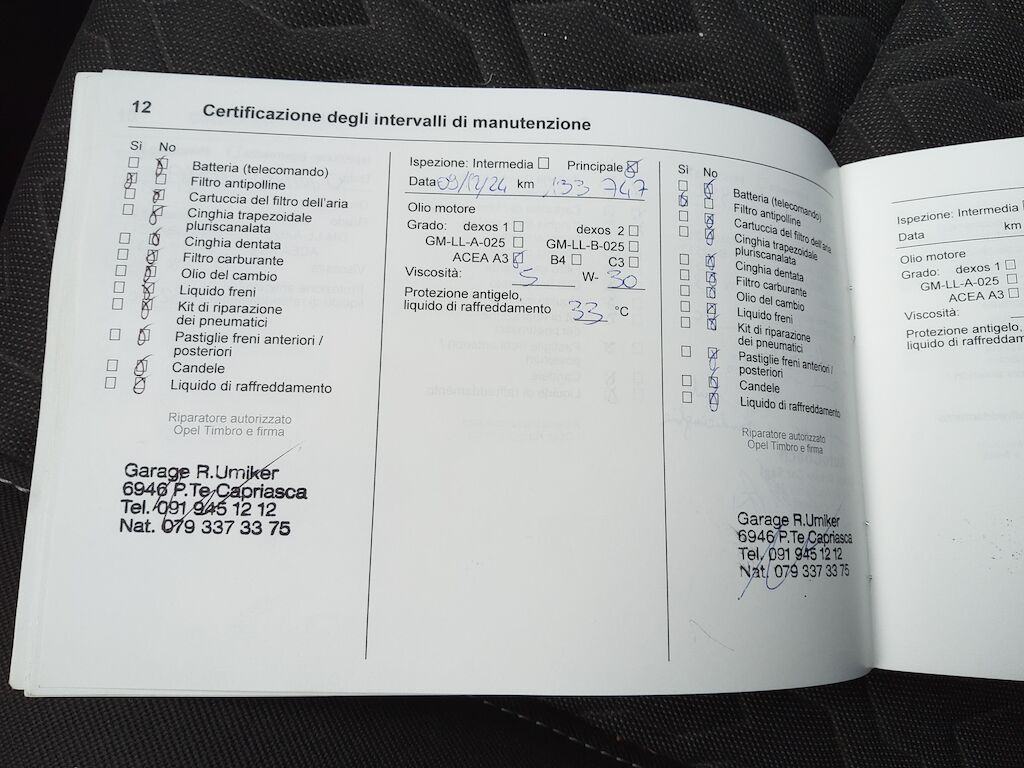 12 Certificazione degli intervalli di manutenzione
Sì No
Batteria (telecomando)
Filtro antipolline
Cartuccia del filtro dell'aria
Cinghia trapezoidale
pluriscanalata
Cinghia dentata
Filtro carburante
Olio del cambio
Liquido freni
Kit di riparazione
dei pneumatici
Pastiglie freni anteriori /
posteriori
Candele
Liquido di raffreddamento
Riparatore autorizzato
Opel Timbro e firma
Garage R.Umiker
6946 P.Te Capriasca
Tel. 091 945 12 12
Nat. 079 337 33 75
Ispezione: Intermedia Principale
Data 09/12/24 km 133 747
Olio motore
Grado: dexos 1 dexos 2
GM-LL-A-025 GM-LL-B-025
ACEA A3 B4 C3
Viscosità: 5 W- 30
Protezione antigelo,
liquido di raffreddamento 33 °C
Sì No
Batteria (telecomando)
Filtro antipolline
Cartuccia del filtro dell'aria
Cinghia trapezoidale
pluriscanalata
Cinghia dentata
Filtro carburante
Olio del cambio
Liquido freni
Kit di riparazione
dei pneumatici
Pastiglie freni anteriori /
posteriori
Candele
Liquido di raffreddamento
Riparatore autorizzato
Opel Timbro e firma
Garage R.Umiker
6946 P.Te Capriasca
Tel. 091 945 12 12
Nat. 079 337 33 75
Ispezione: Intermedia
Data km
Olio motore
Grado: dexos 1
GM-LL-A-025
ACEA A3
Viscosità:
Protezione antigelo,
liquido di